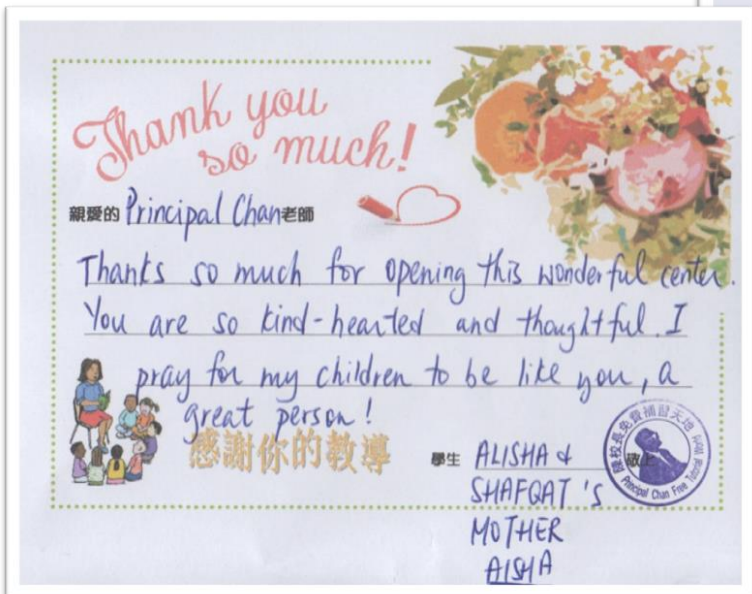 Thank you
so much!
親愛的 Principal Chan老師
Thanks so much for opening this wonderful center.
You are so kind-hearted and thoughtful. I
pray for my children to be like you, a
great person!
感謝你的教導
學生 ALISHA & 敬上
SHAFQAT'S
MOTHER
AISHA
陳校長免費補習天地
Principal Chan Free Tutorial World